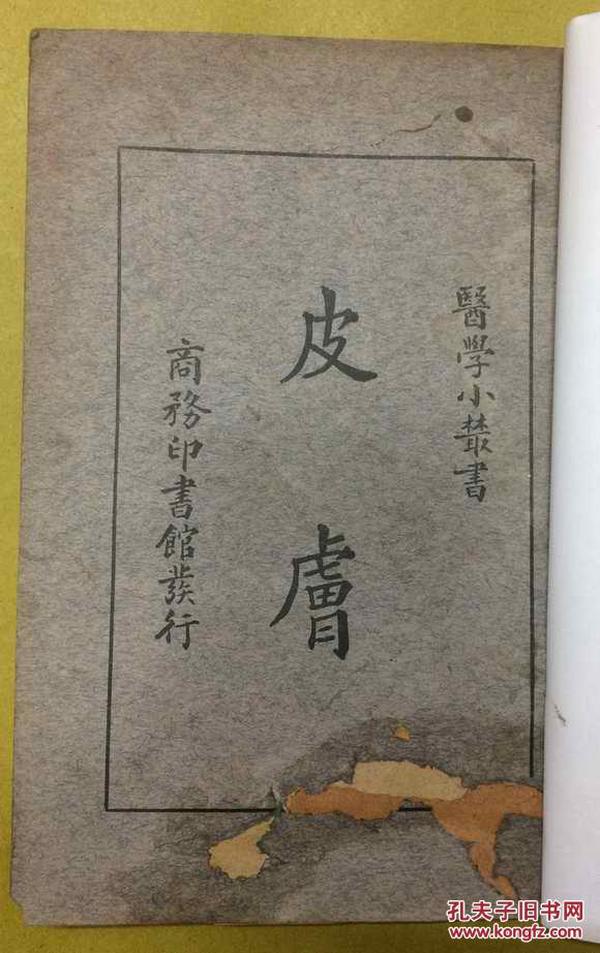 醫學小叢書
皮膚
商務印書館發行
孔夫子旧书网
www.kongfz.com